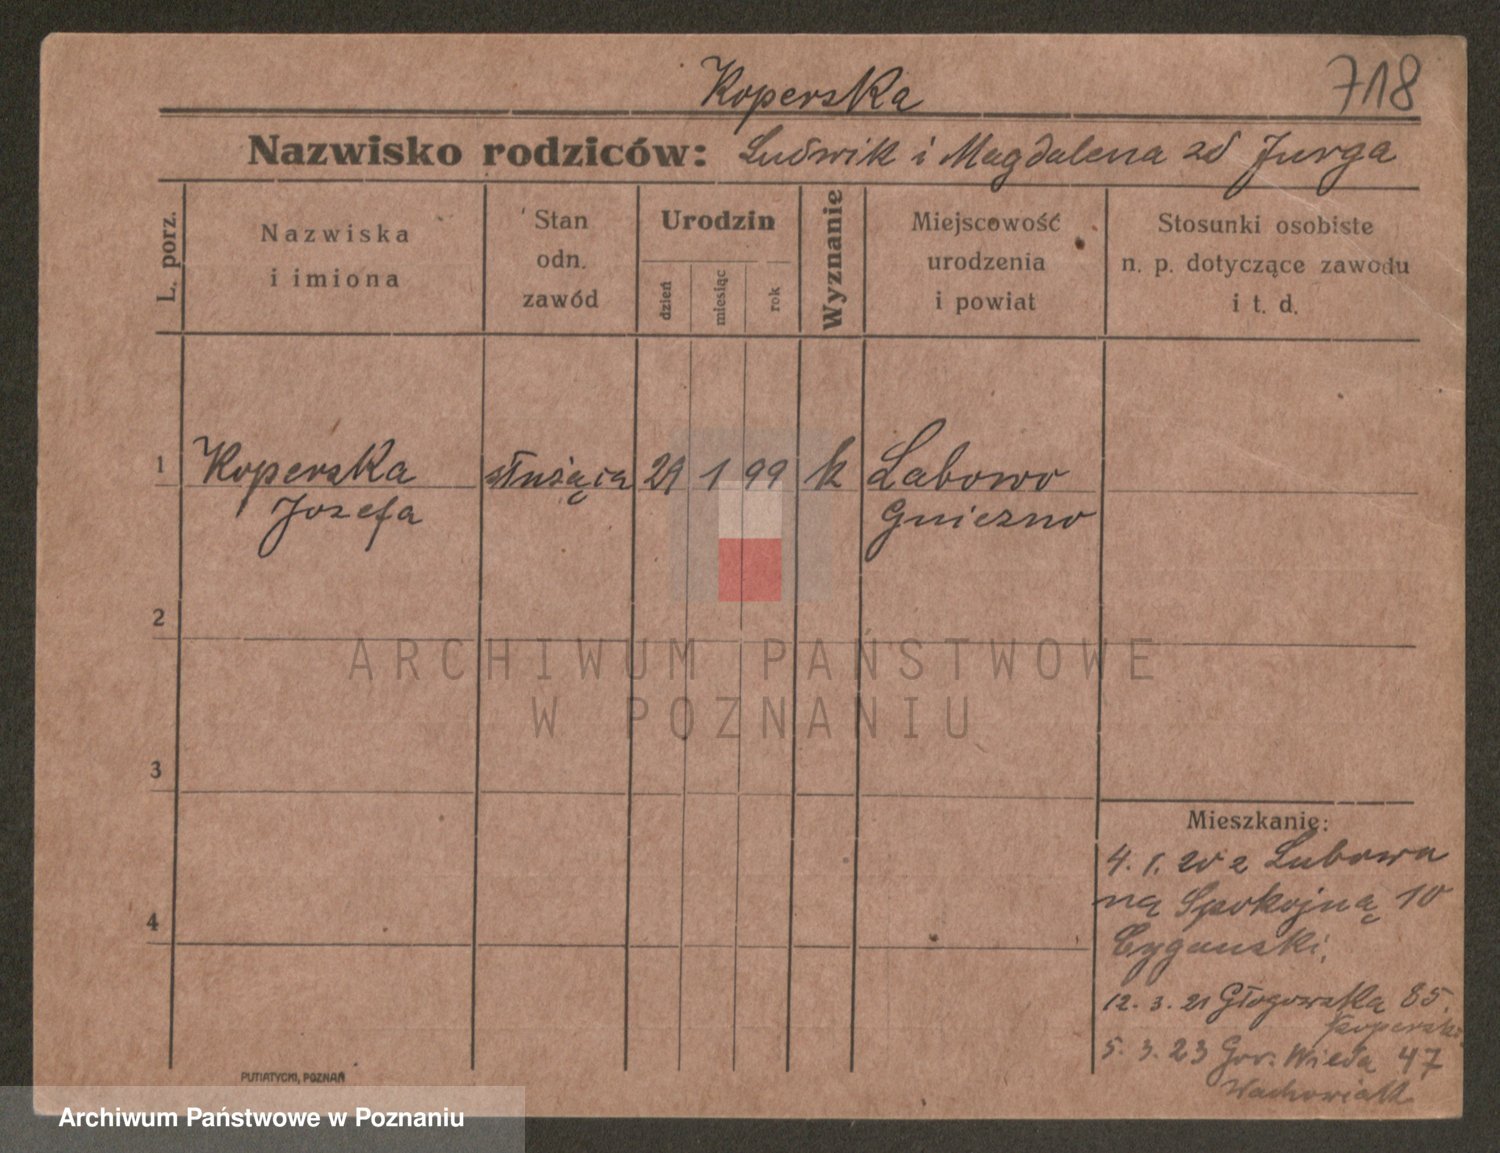 Koperska
718
Nazwisko rodziców: Ludwik i Magdalena zd Jurga
L. porz.
Nazwiska
i imiona
Stan
odn.
zawód
Urodzin
dzień
miesiąc
rok
Wyznanie
Miejscowość
urodzenia
i powiat
Stosunki osobiste
n. p. dotyczące zawodu
i t. d.
1 Koperska służąca 29 1 99 k Łabowo
Jozefa Gniezno
2
ARCHIWUM PAŃSTWOWE
W POZNANIU
3
Mieszkanie:
4. 1. 20 z Łubowa
na Spokojną 10
Cyganski.
4
12. 3. 21 Głogowska 85.
Koperski
5. 3. 23 Gór. Wilda 47
Wachowiak
PUTIATYCKI, POZNAŃ
Archiwum Państwowe w Poznaniu